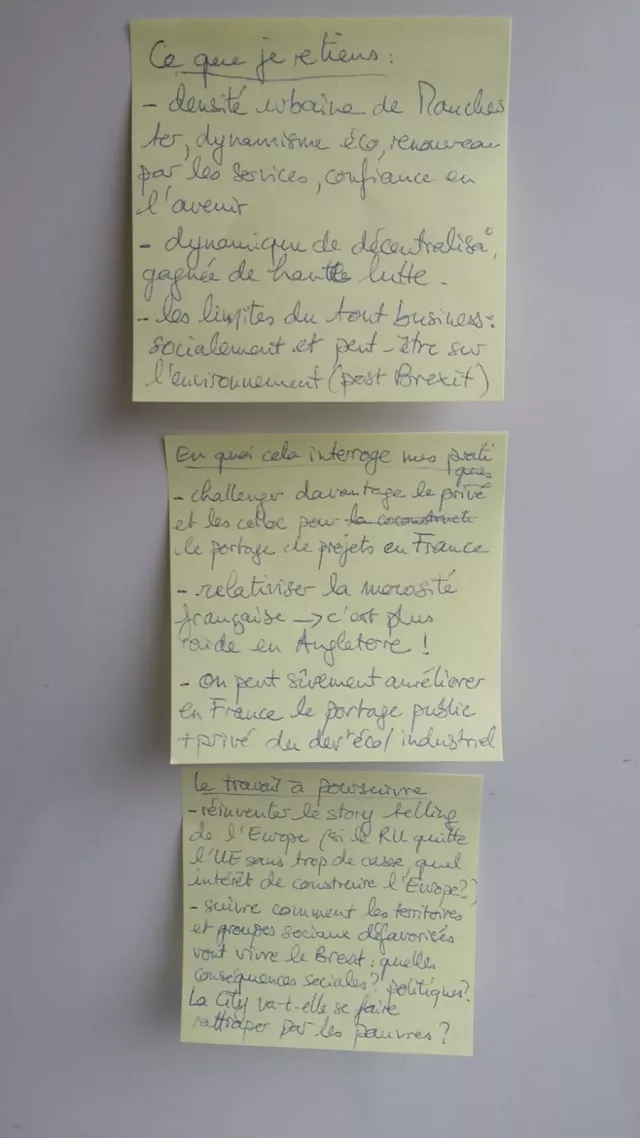 Ce que je retiens :
- densité urbaine de Manches
ter, dynamisme éco, renouveau
par les services, confiance en
l'avenir
- dynamique de décentralisa°,
gagnée de haute lutte.
- les limites du tout business :
socialement et peut-être sur
l'environnement (post Brexit)
En quoi cela interroge mes prati
ques
- challenger davantage le privé
et les colloc pour la coconstructi
le portage de projets en France
- relativiser la morosité
française → c'est plus
raide en Angleterre !
- On peut sûrement améliorer
en France le portage public
+ privé du devt éco/industriel
Le travail à poursuivre
- réinventer le story telling
de l'Europe (si le RU quitte
l'UE sans trop de casse, quel
intérêt de construire l'Europe?)
- suivre comment les territoires
et groupes sociaux défavorisés
vont vivre le Brexit : quelles
conséquences sociales? politiques?
La City va-t-elle se faire
rattraper par les pauvres ?